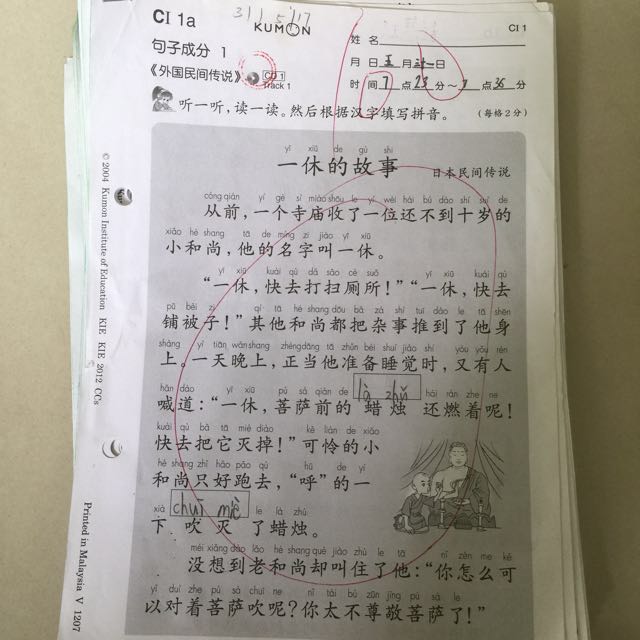 CI 1a
31/5/17
KUMON
CI 1
句子成分 1
姓 名
月 日 五 月 三十一 日
《外国民间传说》 CD 1
Track 1
时 间 7 点 23 分 ~ 7 点 35 分
听一听，读一读。然后根据汉字填写拼音。
（每格2分）
yī xiū de gù shi
一休的故事
日本民间传说
cóng qián yí gè sì miào shōu le yí wèi hái bú dào shí suì de
从前，一个寺庙收了一位还不到十岁的
xiǎo hé shang tā de míng zi jiào yī xiū
小和尚，他的名字叫一休。
yī xiū kuài qù dǎ sǎo cè suǒ yī xiū kuài qù
“一休，快去打扫厕所！”“一休，快去
pū bèi zi qí tā hé shang dōu bǎ zá shì tuī dào le tā shēn
铺被子！”其他和尚都把杂事推到了他身
shàng yì tiān wǎn shang zhèng dāng tā zhǔn bèi shuì jiào shí yòu yǒu rén
上。一天晚上，正当他准备睡觉时，又有人
hǎn dào yī xiū pú sà qián de là zhú hái rán zhe ne
喊道：“一休，菩萨前的 蜡 烛 还燃着呢！
kuài qù bǎ tā miè diào kě lián de xiǎo
快去把它灭掉！”可怜的小
hé shang zhǐ hǎo pǎo qù hū de yí
和尚只好跑去，“呼”的一
xià chuī miè le là zhú
下 吹 灭 了蜡烛。
méi xiǎng dào lǎo hé shang què jiào zhù le tā nǐ zěn me kě
没想到老和尚却叫住了他：“你怎么可
yǐ duì zhe pú sà chuī ne nǐ tài bù zūn jìng pú sà le
以对着菩萨吹呢？你太不尊敬菩萨了！”
© 2004 Kumon Institute of Education KIE KIE 2012 CCs
Printed in Malaysia V 1207